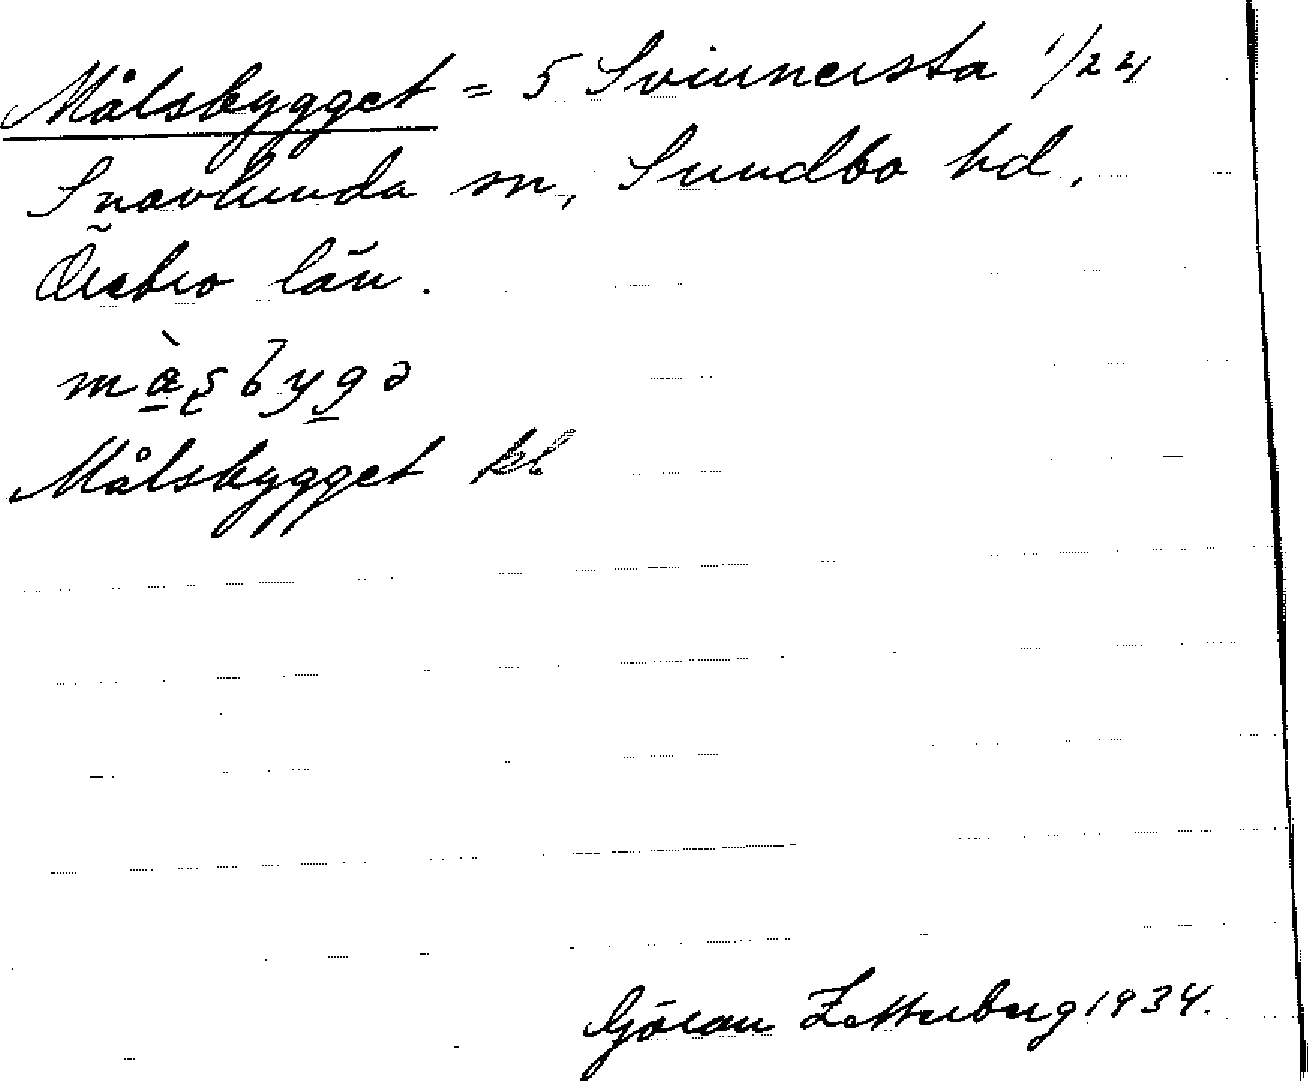 Målsbygget = 5 Svinnersta 1/24
Snavlunda sn, Sundbo hd.
Örebro län.
Målsbygget kl
Göran Zetterberg 1934.